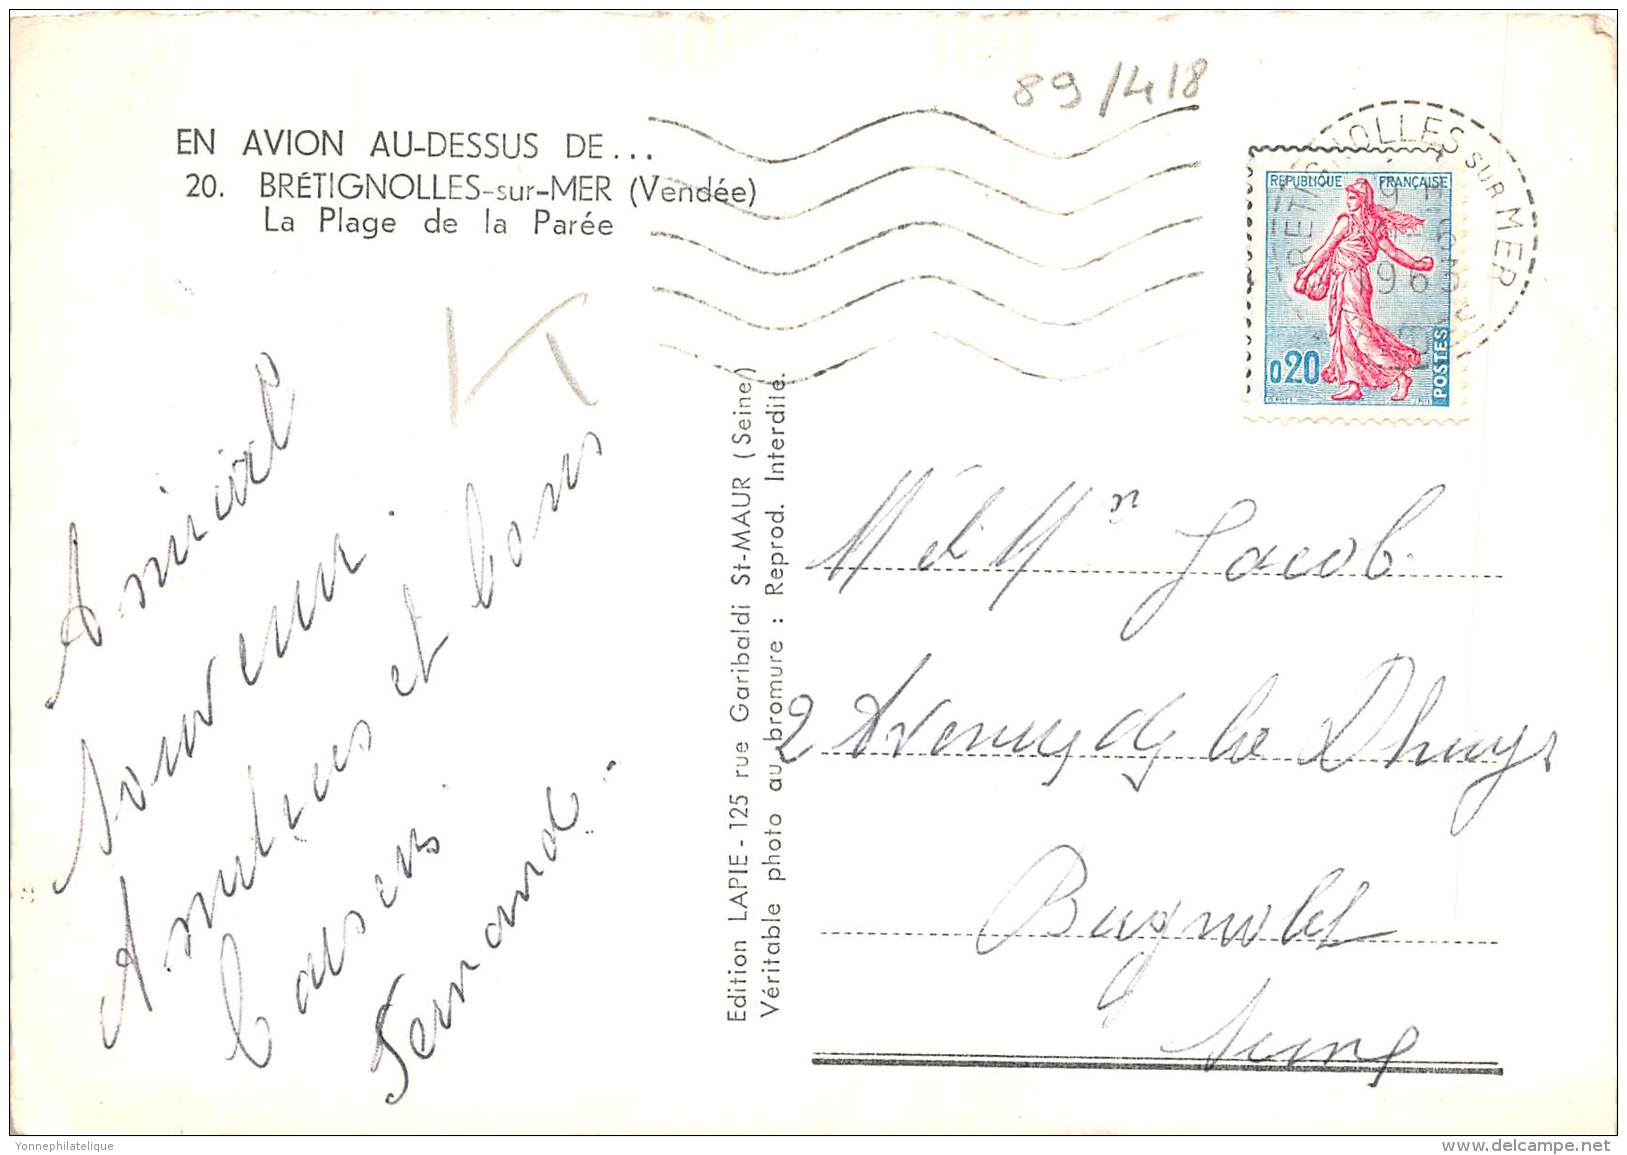 89/418
EN AVION AU-DESSUS DE...
20. BRÉTIGNOLLES-sur-MER (Vendée)
La Plage de la Parée
BRETIGNOLLES SUR MER
1963
REPUBLIQUE FRANÇAISE
0,20
POSTES
Amical
souvenir.
Amitiés et bons
baisers
Fernande.
Edition LAPIE - 125 rue Garibaldi St-MAUR (Seine)
Véritable photo au bromure : Reprod. Interdite.
M et Mm Jacob.
2 Avenue de la Dhuys
Bagnolet
Seine
Yonnephilatelique
www.delcampe.net